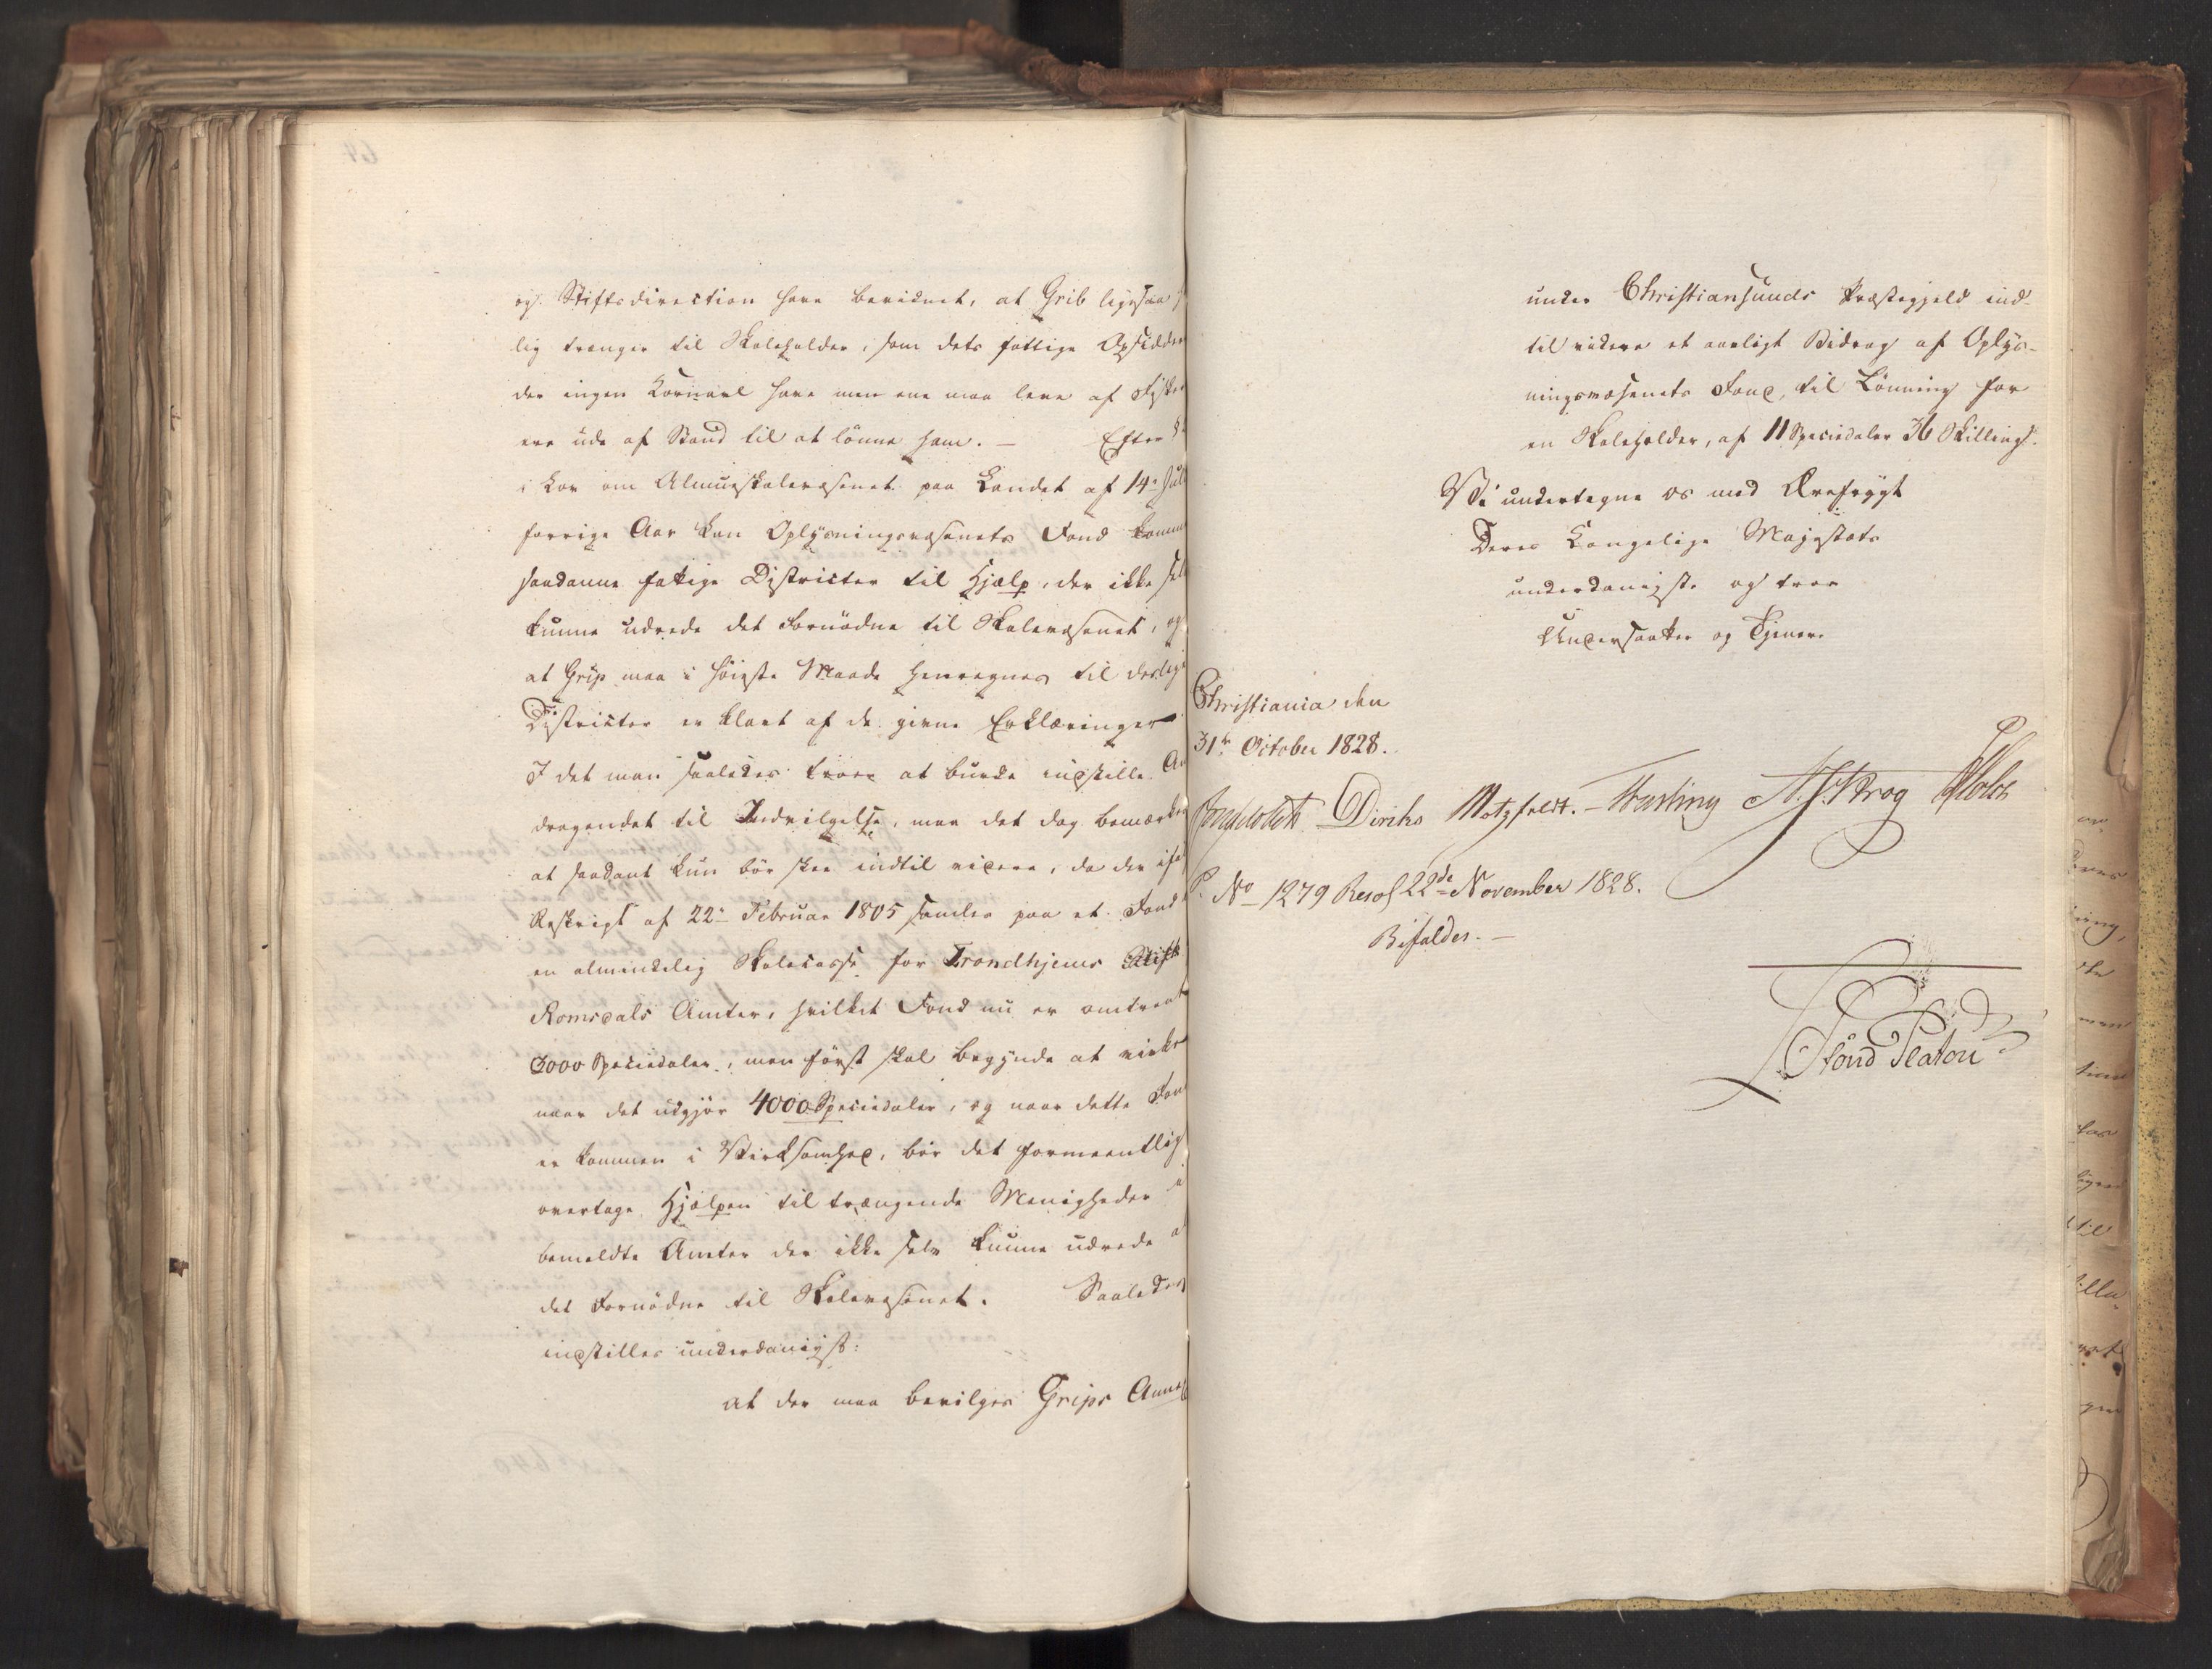 og Stiftsdirection have bevidnet, at Grib ligesaa
lig trænger til Skoleholder, som dets fattige Opsiddere
der ingen Kornavl have men ene maa leve af Fisken
ere ude af Stand til at lönne ham. — Efter
i Lov om Almueskolevæsenet paa Landet af 14de Juli
forrige Aar kan Oplysningsvæsenets Fond komme
saadanne fattige Districter til Hjælp, der ikke selv
kunne udrede det Fornödne til Skolevæsenet, og
at Grip maa i höieste Maade henregnes til deslige
Districter er klart af de givne Erklæringer
I det man saaledes troer at burde indstille An
dragendet til Indvilgelse, maa det dog bemærkes
at saadant kun bör skee indtil videre, da der if
Reskript af 22de Februar 1805 samles paa et Fond
en almindelig Skolecasse for Trondhjems Stift
Romsdals Amter, hvilket Fond nu er omtrent
3000 Speciedaler, men först skal begynde at virke
naar det udgjör 4000 Speciedaler, og naar dette Fond
er kommen i Virksomhed, bör det formeentlig
overtage Hjælpen til trængende Menigheder i
bemeldte Amter der ikke selv kunne udrede
det Fornödne til Skolevæsenet. Saaledes
indstilles underdanigst:
at der maa bevilges Grips Annex
under Christiansunds Præstegjeld ind-
til videre et aarligt Bidrag af Oplys-
ningsvæsenets Fond, til Lönning for
en Skoleholder, af 11 Speciedaler 36 Skilling.
Vi undertegne os med Ærefrygt
Deres Kongelige Majestæts
underdanigste og troe
Undersaatter og Tjenere
Christiania den
31te October 1828.
Diriks Motzfeldt. Treschow N. J. Krog Holst
P. No 1279 Resol 22de November 1828.
Bifaldes. —
Lövenskiold Platou